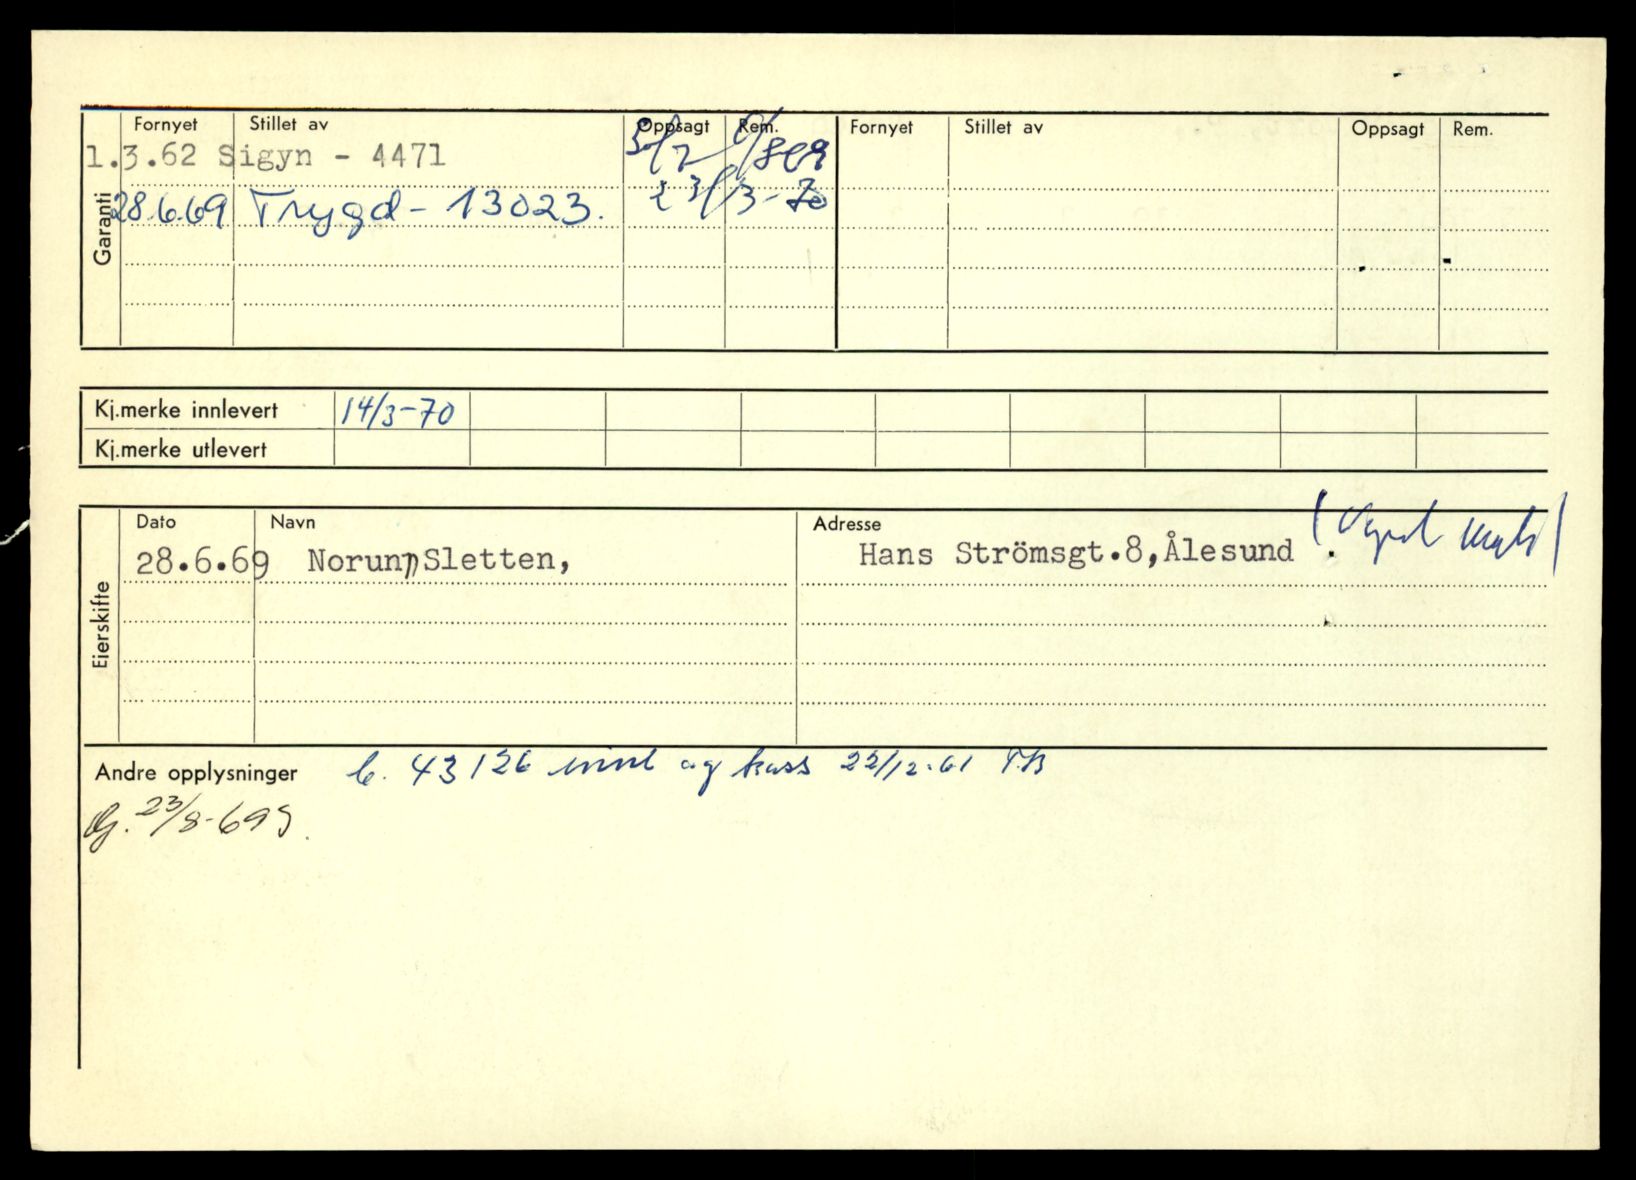 Garanti
Fornyet Stillet av Oppsagt Rem. Fornyet Stillet av Oppsagt Rem.
1.3.62 Sigyn - 4471
28.6.69 Trygd - 13023. 23/3-70
Kj.merke innlevert 14/3-70
Kj.merke utlevert
Eierskifte
Dato Navn Adresse
28.6.69 Norunn Sletten, Hans Strömsgt.8,Ålesund
Andre opplysninger 43126 innl og kass 22/12-61
23/8-69